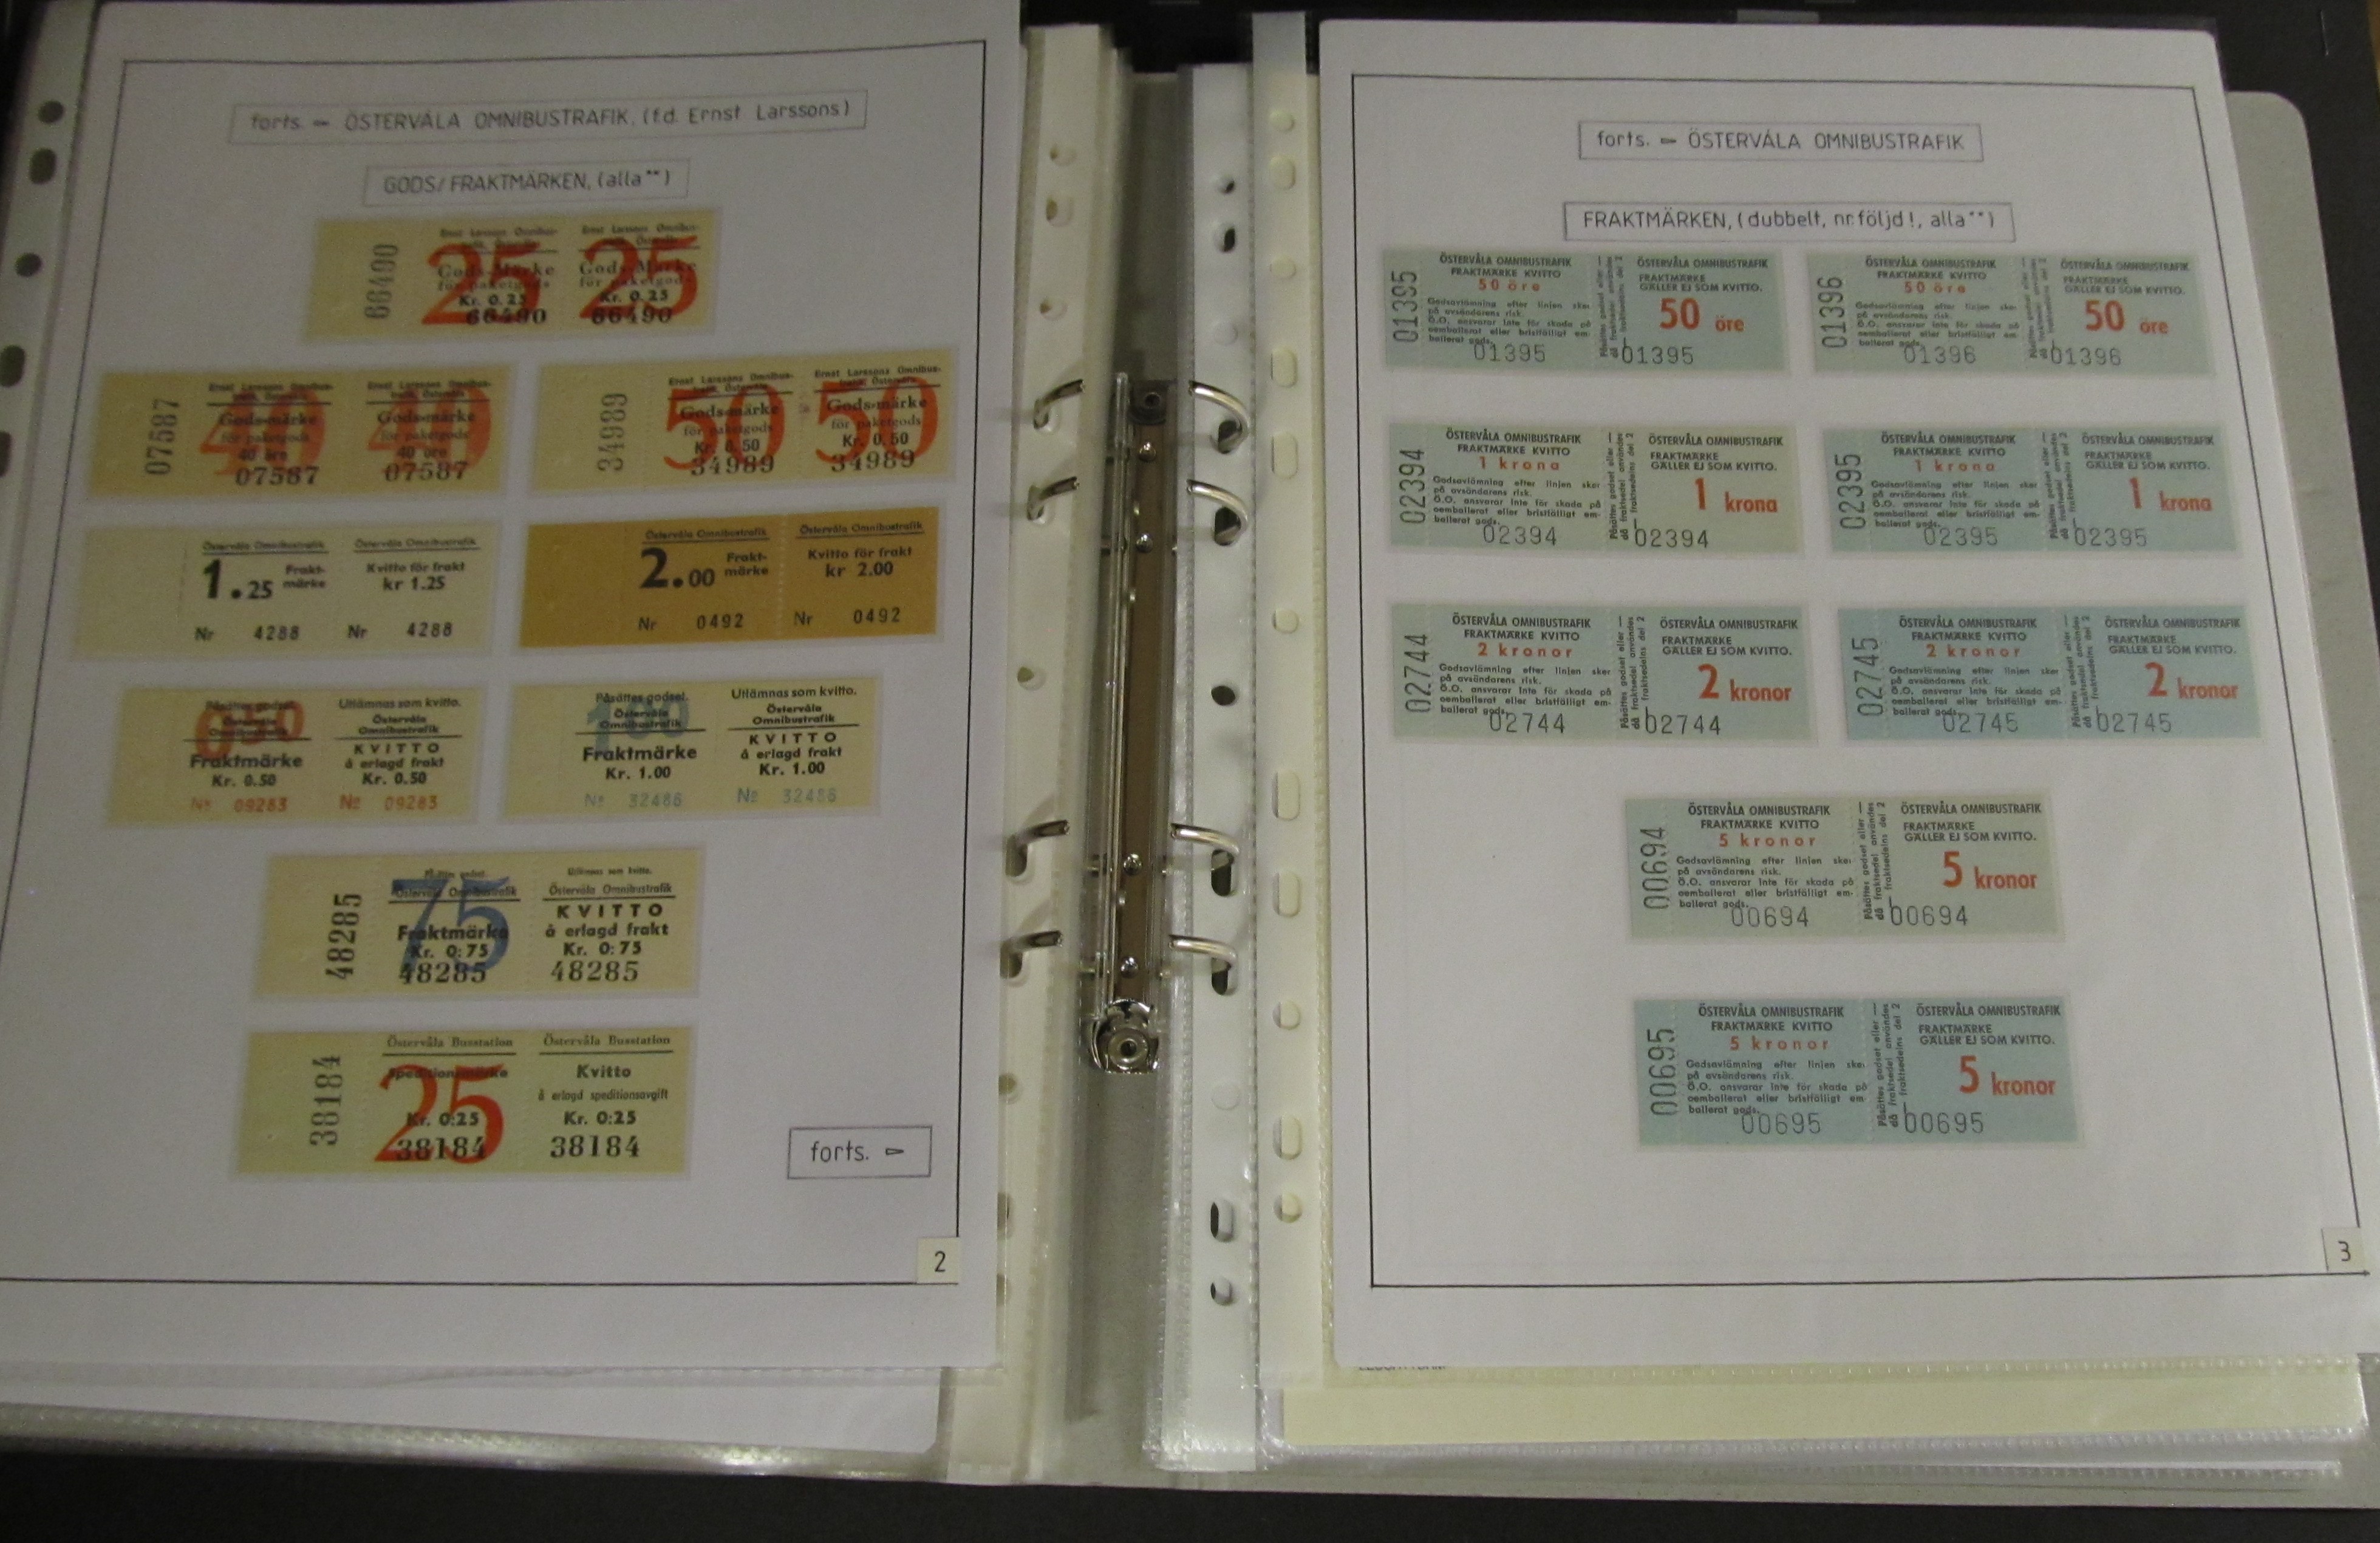 forts. ÖSTERVÅLA OMNIBUSTRAFIK, (f.d. Ernst Larssons)
GODS/FRAKTMÄRKEN, (alla **)
66490
Ernst Larssons Omnibus-
25
Gods-Märke
för paketgods
Kr. 0.25
66490
Ernst Larssons Omnibus-
25
Gods-Märke
för paketgods
Kr. 0.25
66490
07587
Ernst Larssons Omnibus-
trafik, Östervåla
40
Gods-märke
för paketgods
40 öre
07587
Ernst Larssons Omnibus-
trafik, Östervåla
40
Gods-märke
för paketgods
40 öre
07587
34989
Ernst Larssons Omnibus-
trafik, Östervåla
50
Gods-märke
för paketgods
Kr. 0.50
34989
Ernst Larssons Omnibus-
trafik, Östervåla
50
Gods-märke
för paketgods
Kr. 0.50
34989
Östervåla Omnibustrafik
1.25 Frakt-
märke
Nr 4288
Östervåla Omnibustrafik
Kvitto för frakt
kr 1.25
Nr 4288
Östervåla Omnibustrafik
2.00 Frakt-
märke
Nr 0492
Östervåla Omnibustrafik
Kvitto för frakt
kr 2.00
Nr 0492
Påsättes godset.
Östervåla
Omnibustrafik
Fraktmärke
Kr. 0.50
Nº 09283
Utlämnas som kvitto.
Östervåla
Omnibustrafik
KVITTO
å erlagd frakt
Kr. 0.50
Nº 09283
Påsättes godset.
Östervåla
Omnibustrafik
Fraktmärke
Kr. 1.00
Nº 32486
Utlämnas som kvitto.
Östervåla
Omnibustrafik
KVITTO
å erlagd frakt
Kr. 1.00
Nº 32486
48285
Påsättes godset.
Östervåla Omnibustrafik
75
Fraktmärke
Kr. 0:75
48285
Utlämnas som kvitto.
Östervåla Omnibustrafik
KVITTO
å erlagd frakt
Kr. 0:75
48285
38184
Östervåla Busstation
Speditionsmärke
25
Kr. 0:25
38184
Östervåla Busstation
Kvitto
å erlagd speditionsavgift
Kr. 0:25
38184
forts.
2
forts. ÖSTERVÅLA OMNIBUSTRAFIK
FRAKTMÄRKEN, (dubbelt, nr.följd!, alla **)
01395
ÖSTERVÅLA OMNIBUSTRAFIK
FRAKTMÄRKE KVITTO
50 öre
Godsavlämning efter linjen sker
på avsändarens risk.
Ö.O. ansvarar inte för skada på
oemballerat eller bristfälligt em-
ballerat gods.
01395
Påsättes godset eller —
då fraktsedel användes
— fraktsedelns del 2
ÖSTERVÅLA OMNIBUSTRAFIK
FRAKTMÄRKE
GÄLLER EJ SOM KVITTO.
50 öre
01395
01396
ÖSTERVÅLA OMNIBUSTRAFIK
FRAKTMÄRKE KVITTO
50 öre
Godsavlämning efter linjen sker
på avsändarens risk.
Ö.O. ansvarar inte för skada på
oemballerat eller bristfälligt em-
ballerat gods.
01396
Påsättes godset eller —
då fraktsedel användes
— fraktsedelns del 2
ÖSTERVÅLA OMNIBUSTRAFIK
FRAKTMÄRKE
GÄLLER EJ SOM KVITTO.
50 öre
01396
02394
ÖSTERVÅLA OMNIBUSTRAFIK
FRAKTMÄRKE KVITTO
1 krona
Godsavlämning efter linjen sker
på avsändarens risk.
Ö.O. ansvarar inte för skada på
oemballerat eller bristfälligt em-
ballerat gods.
02394
Påsättes godset eller —
då fraktsedel användes
— fraktsedelns del 2
ÖSTERVÅLA OMNIBUSTRAFIK
FRAKTMÄRKE
GÄLLER EJ SOM KVITTO.
1 krona
02394
02395
ÖSTERVÅLA OMNIBUSTRAFIK
FRAKTMÄRKE KVITTO
1 krona
Godsavlämning efter linjen sker
på avsändarens risk.
Ö.O. ansvarar inte för skada på
oemballerat eller bristfälligt em-
ballerat gods.
02395
Påsättes godset eller —
då fraktsedel användes
— fraktsedelns del 2
ÖSTERVÅLA OMNIBUSTRAFIK
FRAKTMÄRKE
GÄLLER EJ SOM KVITTO.
1 krona
02395
02744
ÖSTERVÅLA OMNIBUSTRAFIK
FRAKTMÄRKE KVITTO
2 kronor
Godsavlämning efter linjen sker
på avsändarens risk.
Ö.O. ansvarar inte för skada på
oemballerat eller bristfälligt em-
ballerat gods.
02744
Påsättes godset eller —
då fraktsedel användes
— fraktsedelns del 2
ÖSTERVÅLA OMNIBUSTRAFIK
FRAKTMÄRKE
GÄLLER EJ SOM KVITTO.
2 kronor
02744
02745
ÖSTERVÅLA OMNIBUSTRAFIK
FRAKTMÄRKE KVITTO
2 kronor
Godsavlämning efter linjen sker
på avsändarens risk.
Ö.O. ansvarar inte för skada på
oemballerat eller bristfälligt em-
ballerat gods.
02745
Påsättes godset eller —
då fraktsedel användes
— fraktsedelns del 2
ÖSTERVÅLA OMNIBUSTRAFIK
FRAKTMÄRKE
GÄLLER EJ SOM KVITTO.
2 kronor
02745
00694
ÖSTERVÅLA OMNIBUSTRAFIK
FRAKTMÄRKE KVITTO
5 kronor
Godsavlämning efter linjen sker
på avsändarens risk.
Ö.O. ansvarar inte för skada på
oemballerat eller bristfälligt em-
ballerat gods.
00694
Påsättes godset eller —
då fraktsedel användes
— fraktsedelns del 2
ÖSTERVÅLA OMNIBUSTRAFIK
FRAKTMÄRKE
GÄLLER EJ SOM KVITTO.
5 kronor
00694
00695
ÖSTERVÅLA OMNIBUSTRAFIK
FRAKTMÄRKE KVITTO
5 kronor
Godsavlämning efter linjen sker
på avsändarens risk.
Ö.O. ansvarar inte för skada på
oemballerat eller bristfälligt em-
ballerat gods.
00695
Påsättes godset eller —
då fraktsedel användes
— fraktsedelns del 2
ÖSTERVÅLA OMNIBUSTRAFIK
FRAKTMÄRKE
GÄLLER EJ SOM KVITTO.
5 kronor
00695
3